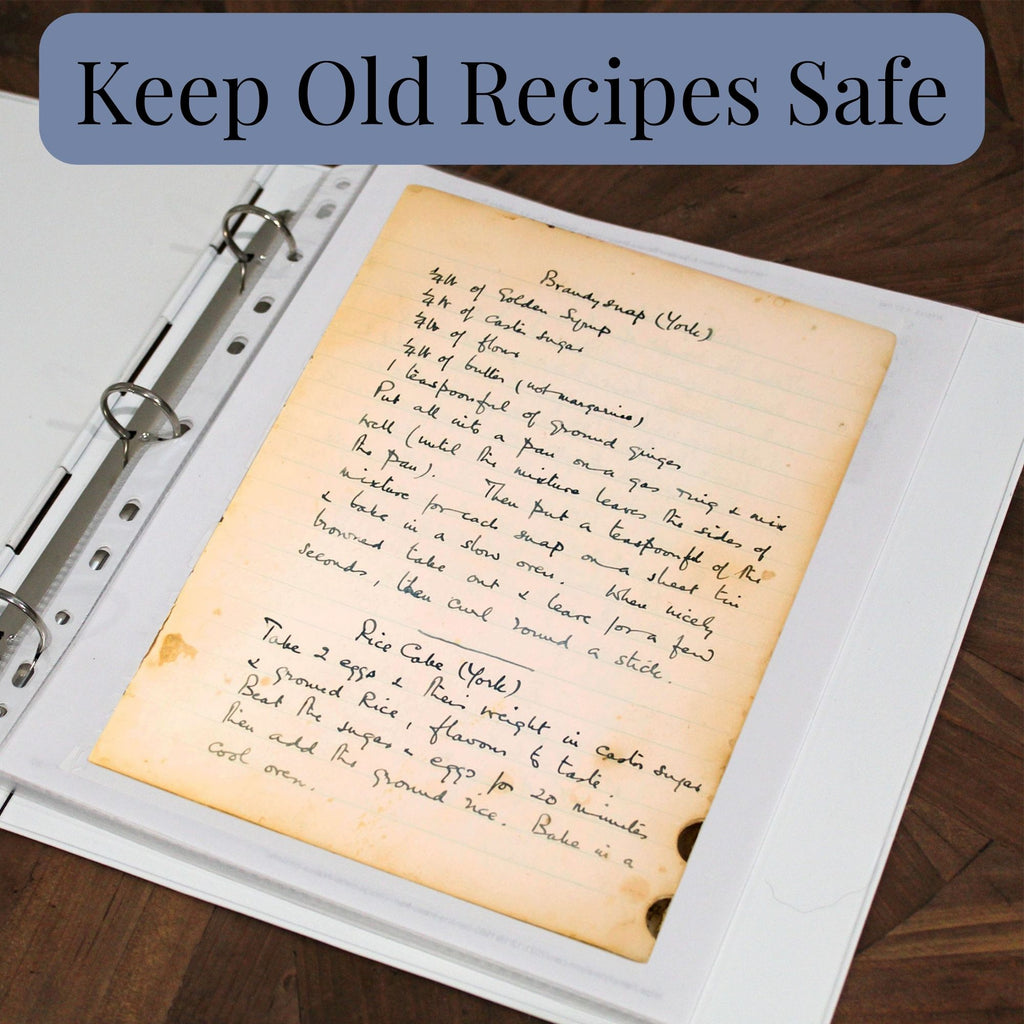 Keep Old Recipes Safe
Brandysnap (York)
¼ lb of Golden Syrup
¼ lb of castor sugar
¼ lb of flour
¼ lb of butter (not margarine)
1 teaspoonful of ground ginger
Put all into a pan on a gas ring & mix
well (until the mixture leaves the sides of
the pan). Then put a teaspoonful of the
mixture for each snap on a sheet tin
& bake in a slow oven. When nicely
browned take out & leave for a few
seconds, then curl round a stick.
Rice Cake (York)
Take 2 eggs & their weight in castor sugar
& ground Rice, flavour to taste.
Beat the sugar & eggs for 20 minutes
then add the ground rice. Bake in a
cool oven.